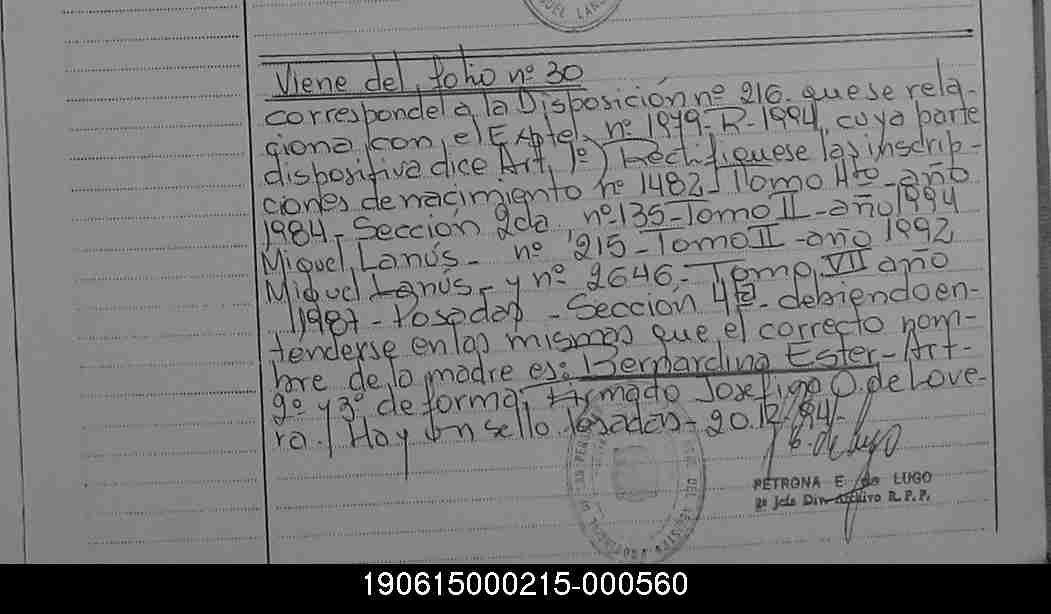 Viene del folio nº 30
corresponde a la Disposición nº 216. que se rela-
ciona con el Expte. nº 1949-R-1994, cuya parte
dispositiva dice Art. 1º) Rectifíquese las inscrip-
ciones de nacimiento nº 1482 Tomo 4to - año
1984 - Sección 2da, nº 135 - Tomo II - año 1994
Miguel Lanús - nº 215 - Tomo II - año 1992
Miguel Lanús - y nº 2646 - Tomo VII año
1987 - Posadas - Sección 4ª - debiendo en-
tenderse en las mismas que el correcto nom-
bre de la madre es: Bernardina Ester - Art -
2º y 3º de forma, Firmado Josefina O. de Love-
ra. / Hay un sello. Posadas - 20.12.94 -
PETRONA E. de LUGO
2º Jefe Div. Archivo R. P. P.
190615000215-000560